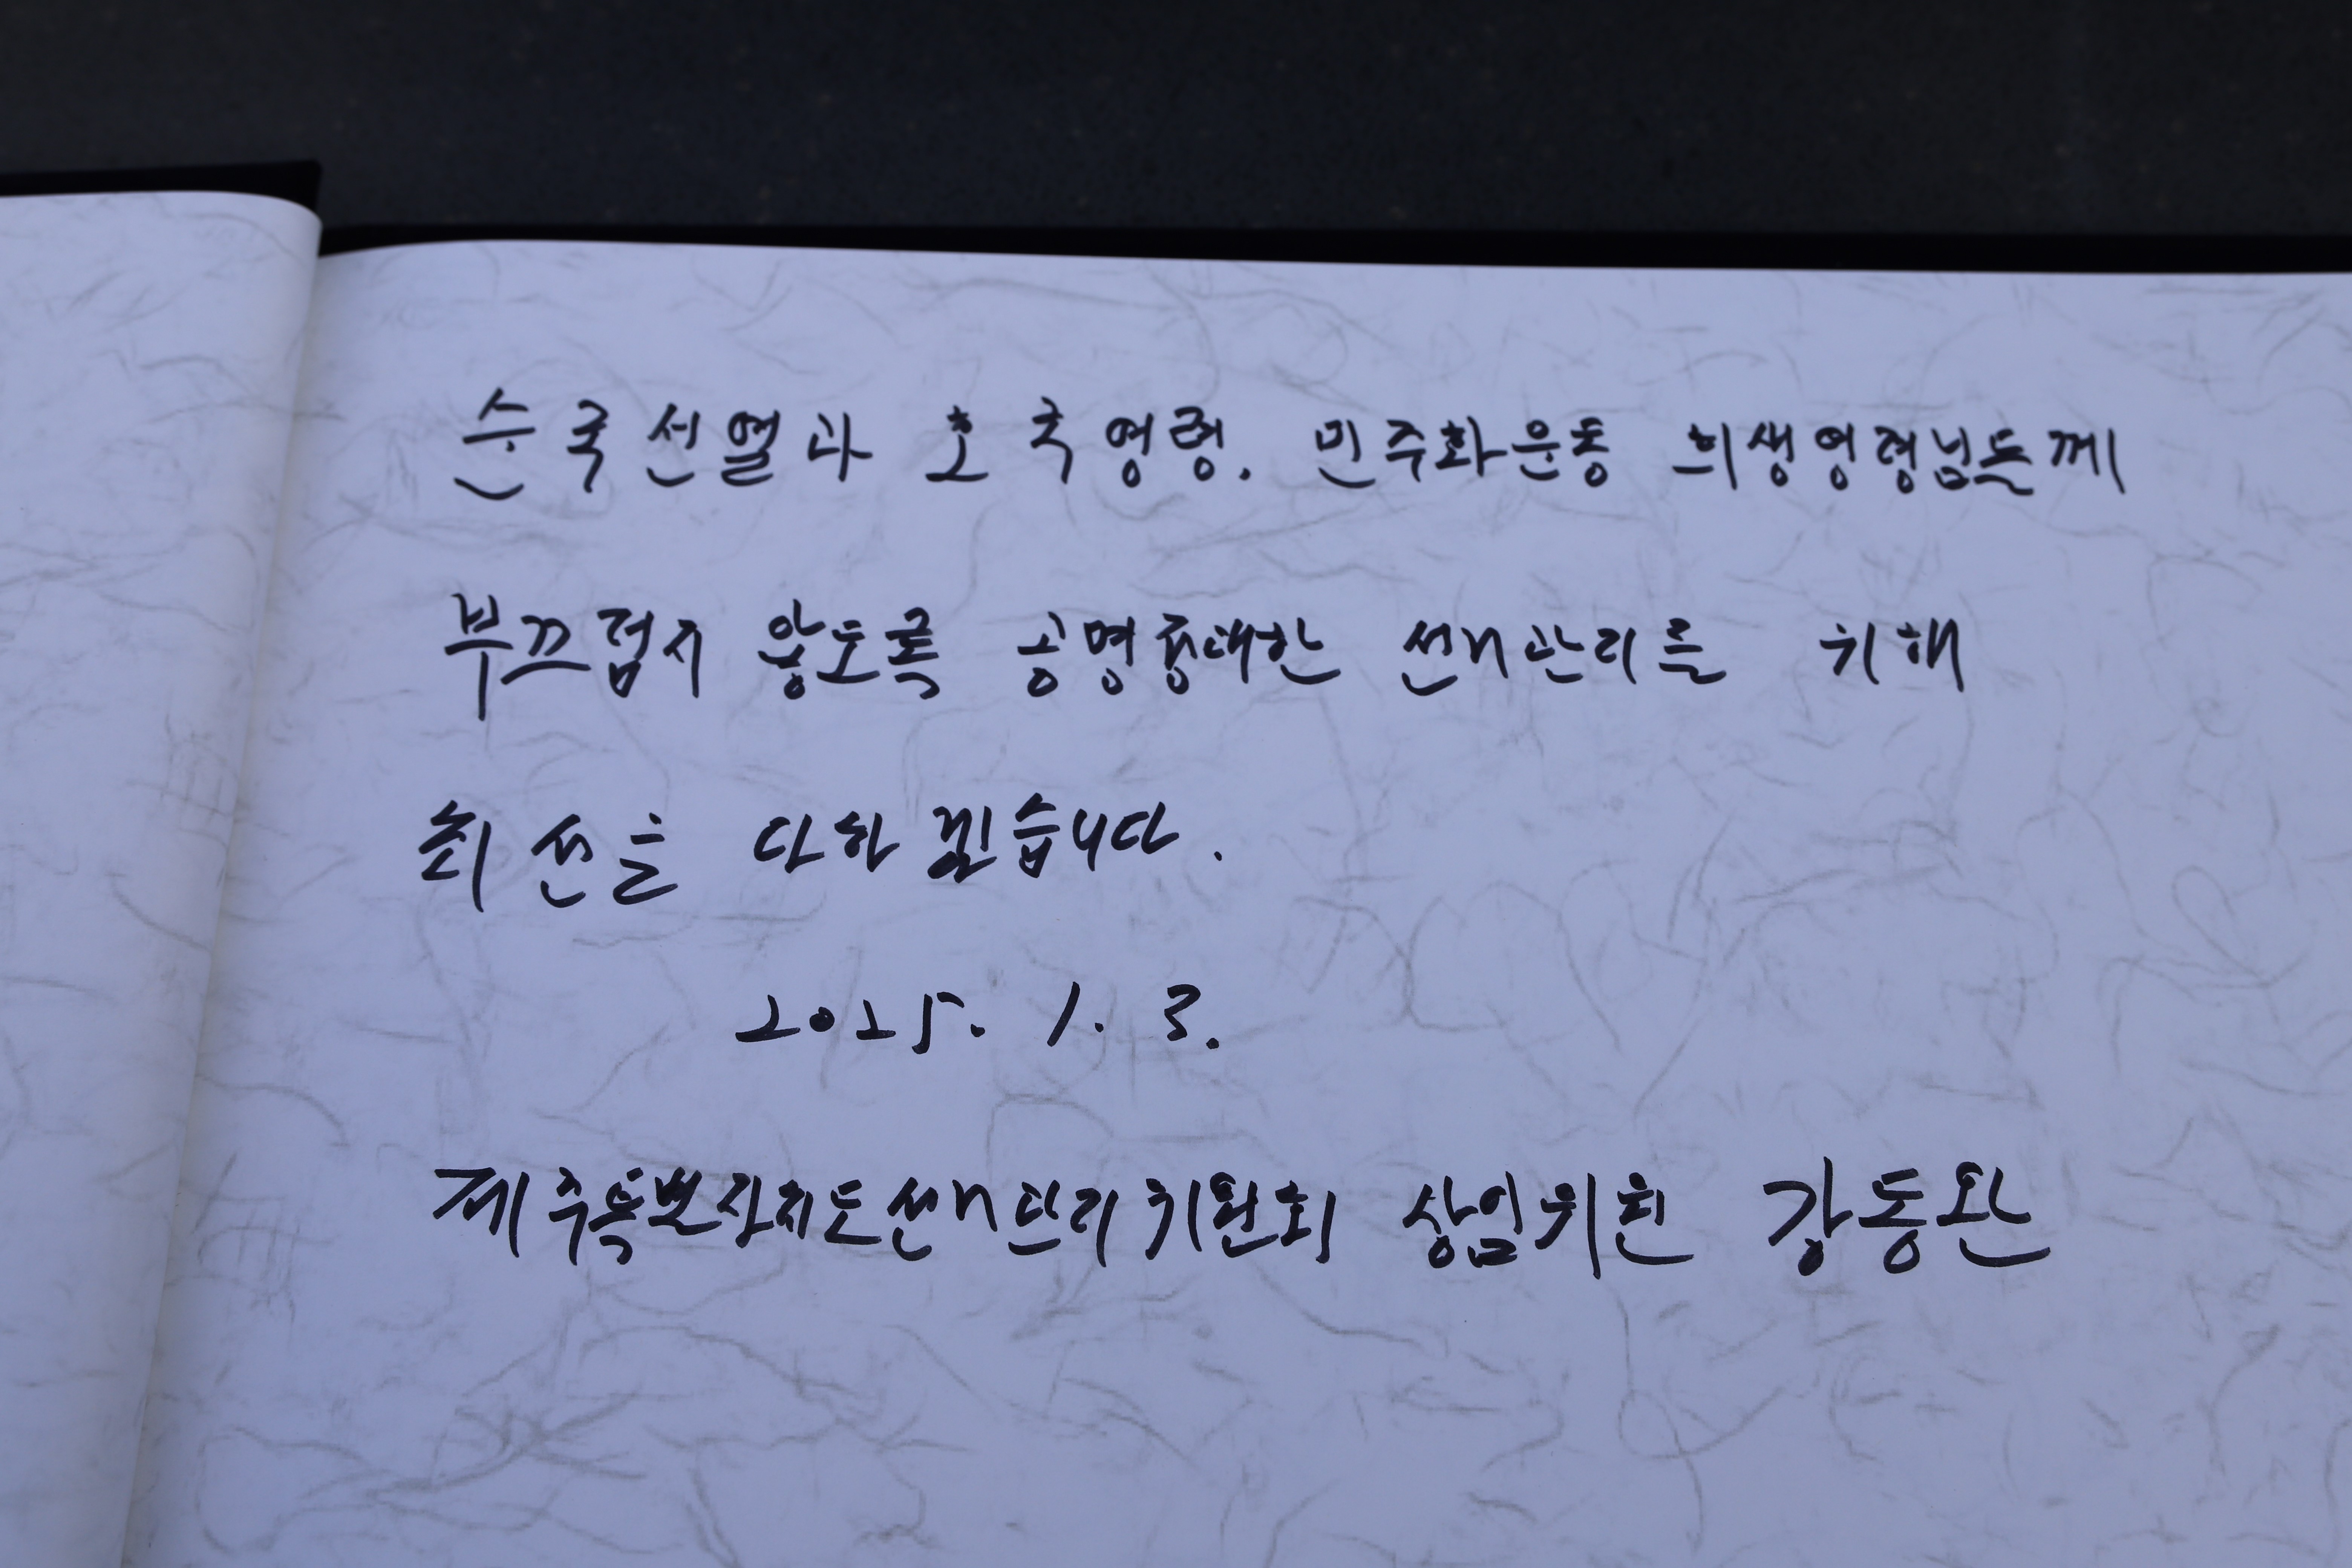 순국선열과 호국영령, 민주화운동 희생영령님들께
부끄럽지 않도록 공명정대한 선거관리를 위해
최선을 다하겠습니다.
2025. 1. 3.
제주특별자치도선거관리위원회 상임위원 강동완